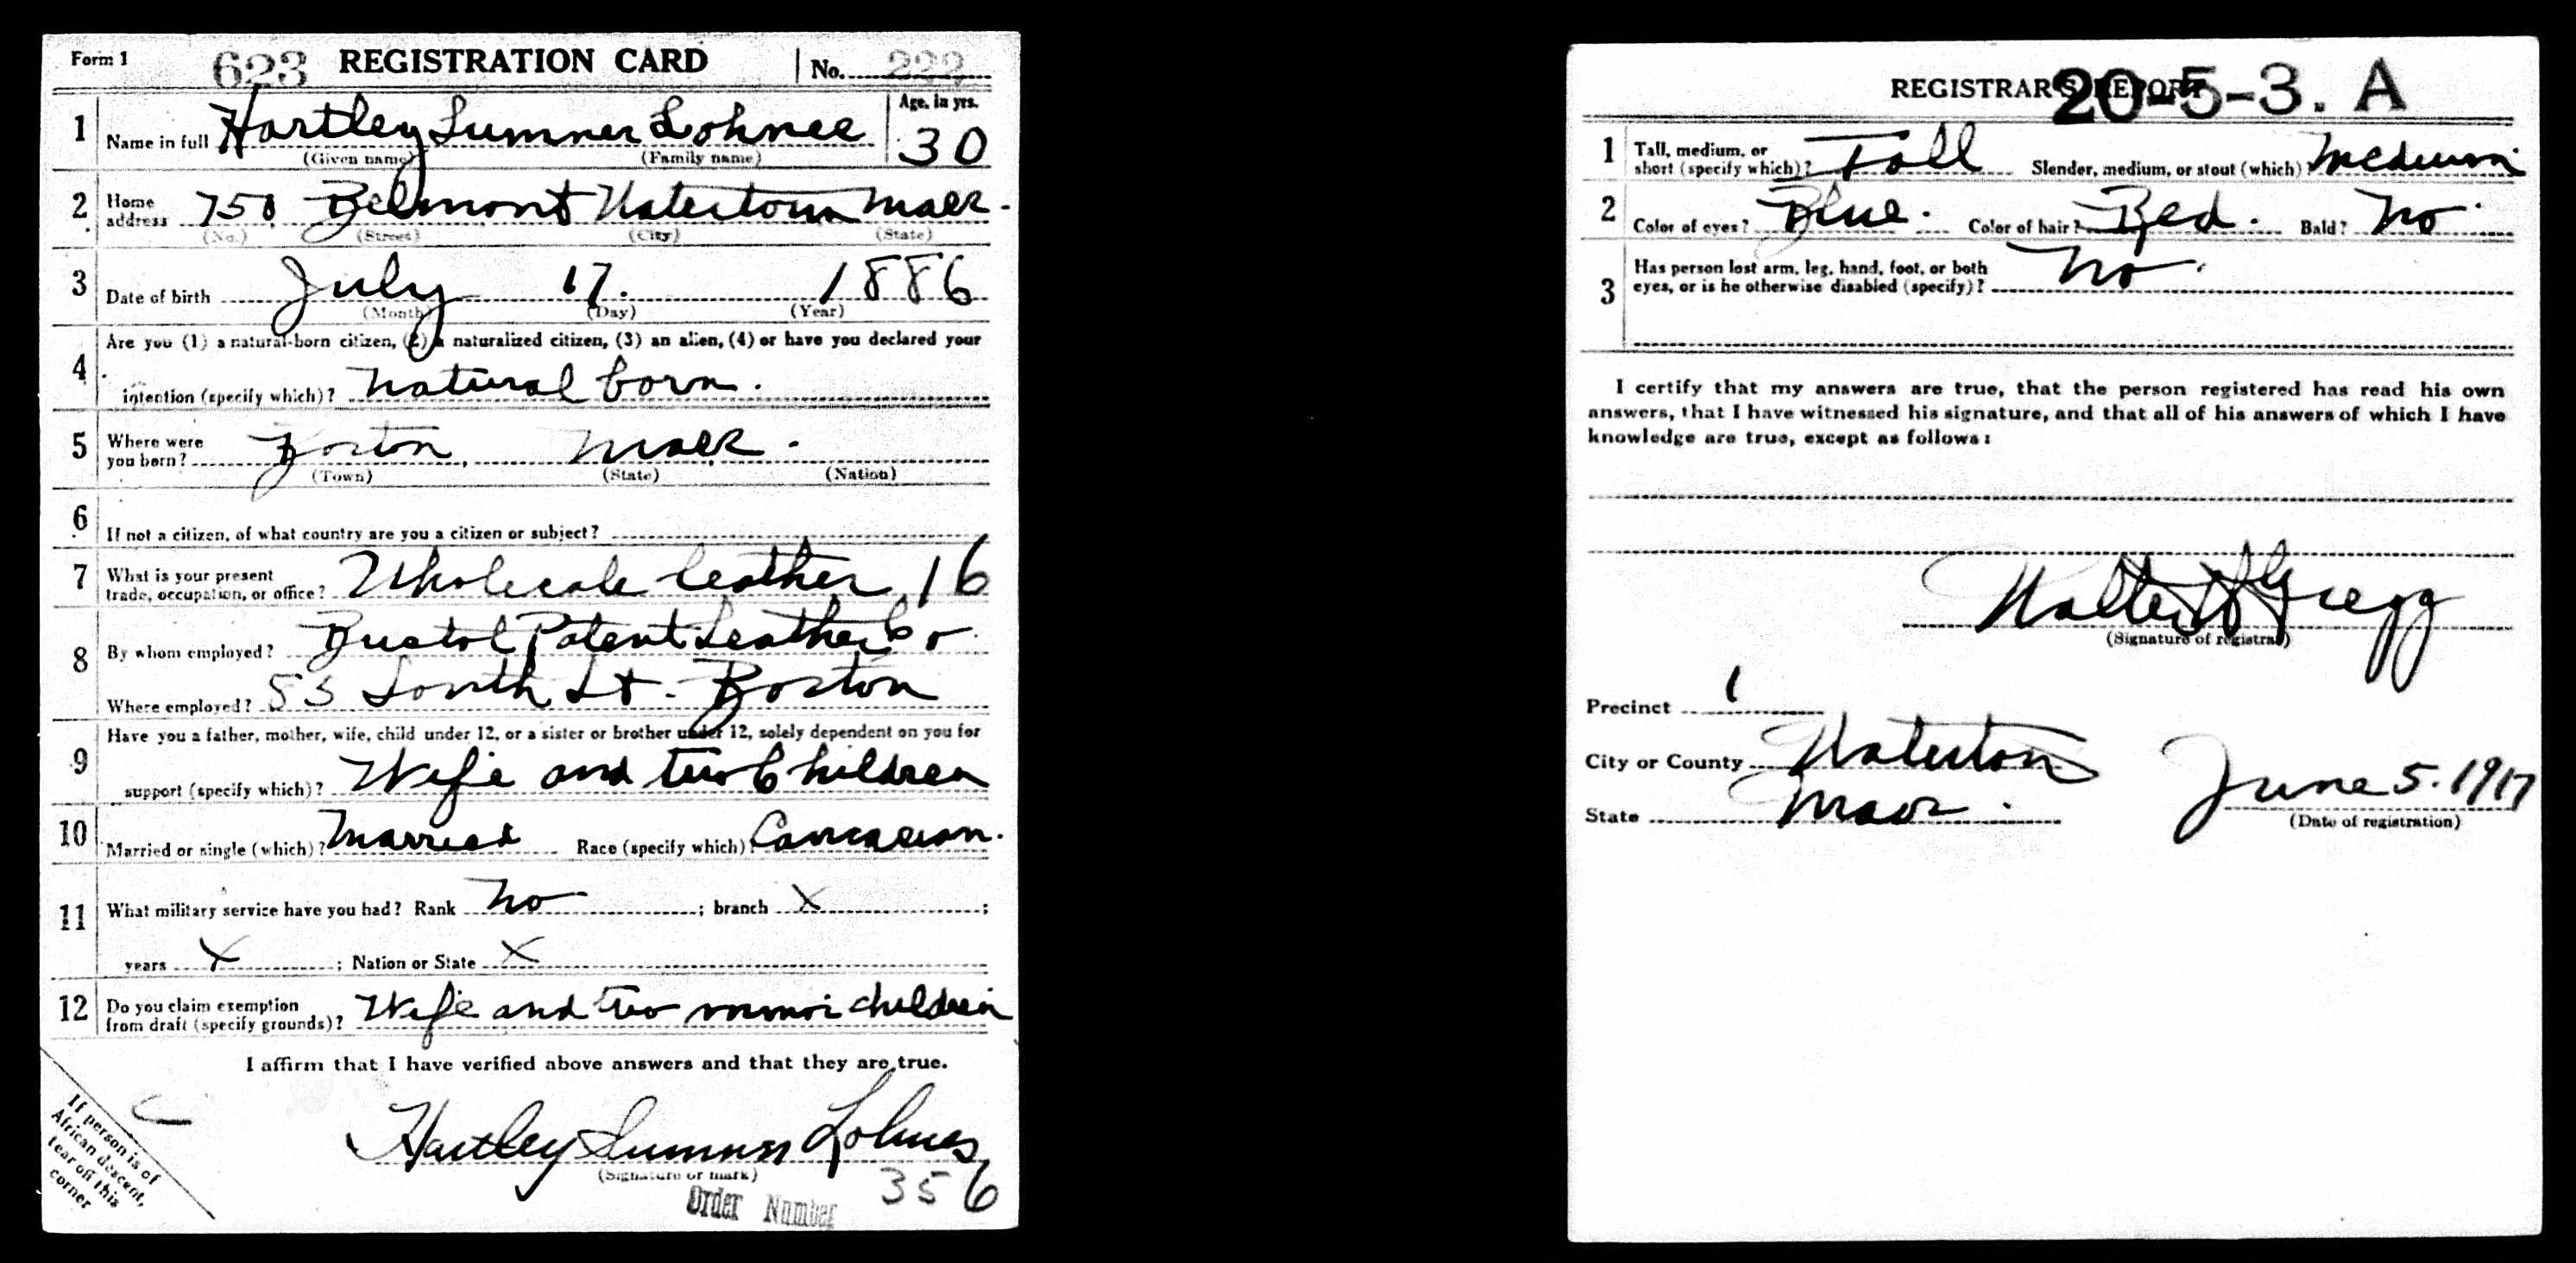 Form 1 623 REGISTRATION CARD No. 222
1 Name in full Hartley Sumner Lohnes Age, in yrs. 30
(Given name) (Family name)
2 Home address 758 Belmont Watertown Mass.
(No.) (Street) (City) (State)
3 Date of birth July 17. 1886
(Month) (Day) (Year)
4 Are you (1) a natural-born citizen, (2) a naturalized citizen, (3) an alien, (4) or have you declared your
intention (specify which)? Natural born.
5 Where were you born? Boston, Mass.
(Town) (State) (Nation)
6 If not a citizen, of what country are you a citizen or subject?
7 What is your present trade, occupation, or office? Wholesale leather 16
8 By whom employed? Bristol Patent Leather Co.
Where employed? 53 South St. Boston
9 Have you a father, mother, wife, child under 12, or a sister or brother under 12, solely dependent on you for
support (specify which)? Wife and two Children
10 Married or single (which)? Married Race (specify which)? Caucasian.
11 What military service have you had? Rank No ; branch X ;
years X ; Nation or State X
12 Do you claim exemption from draft (specify grounds)? Wife and two minor children
I affirm that I have verified above answers and that they are true.
Hartley Sumner Lohnes
(Signature or mark)
Order Number 356
If person is of
African descent,
tear off this
corner
REGISTRAR'S REPORT 20-5-3. A
1 Tall, medium, or short (specify which)? Tall Slender, medium, or stout (which)? Medium
2 Color of eyes? Blue. Color of hair? Red. Bald? No.
3 Has person lost arm, leg, hand, foot, or both
eyes, or is he otherwise disabled (specify)? No.
I certify that my answers are true, that the person registered has read his own
answers, that I have witnessed his signature, and that all of his answers of which I have
knowledge are true, except as follows:
Walter H Gregg
(Signature of registrar)
Precinct 1
City or County Watertown
State Mass. June 5. 1917
(Date of registration)